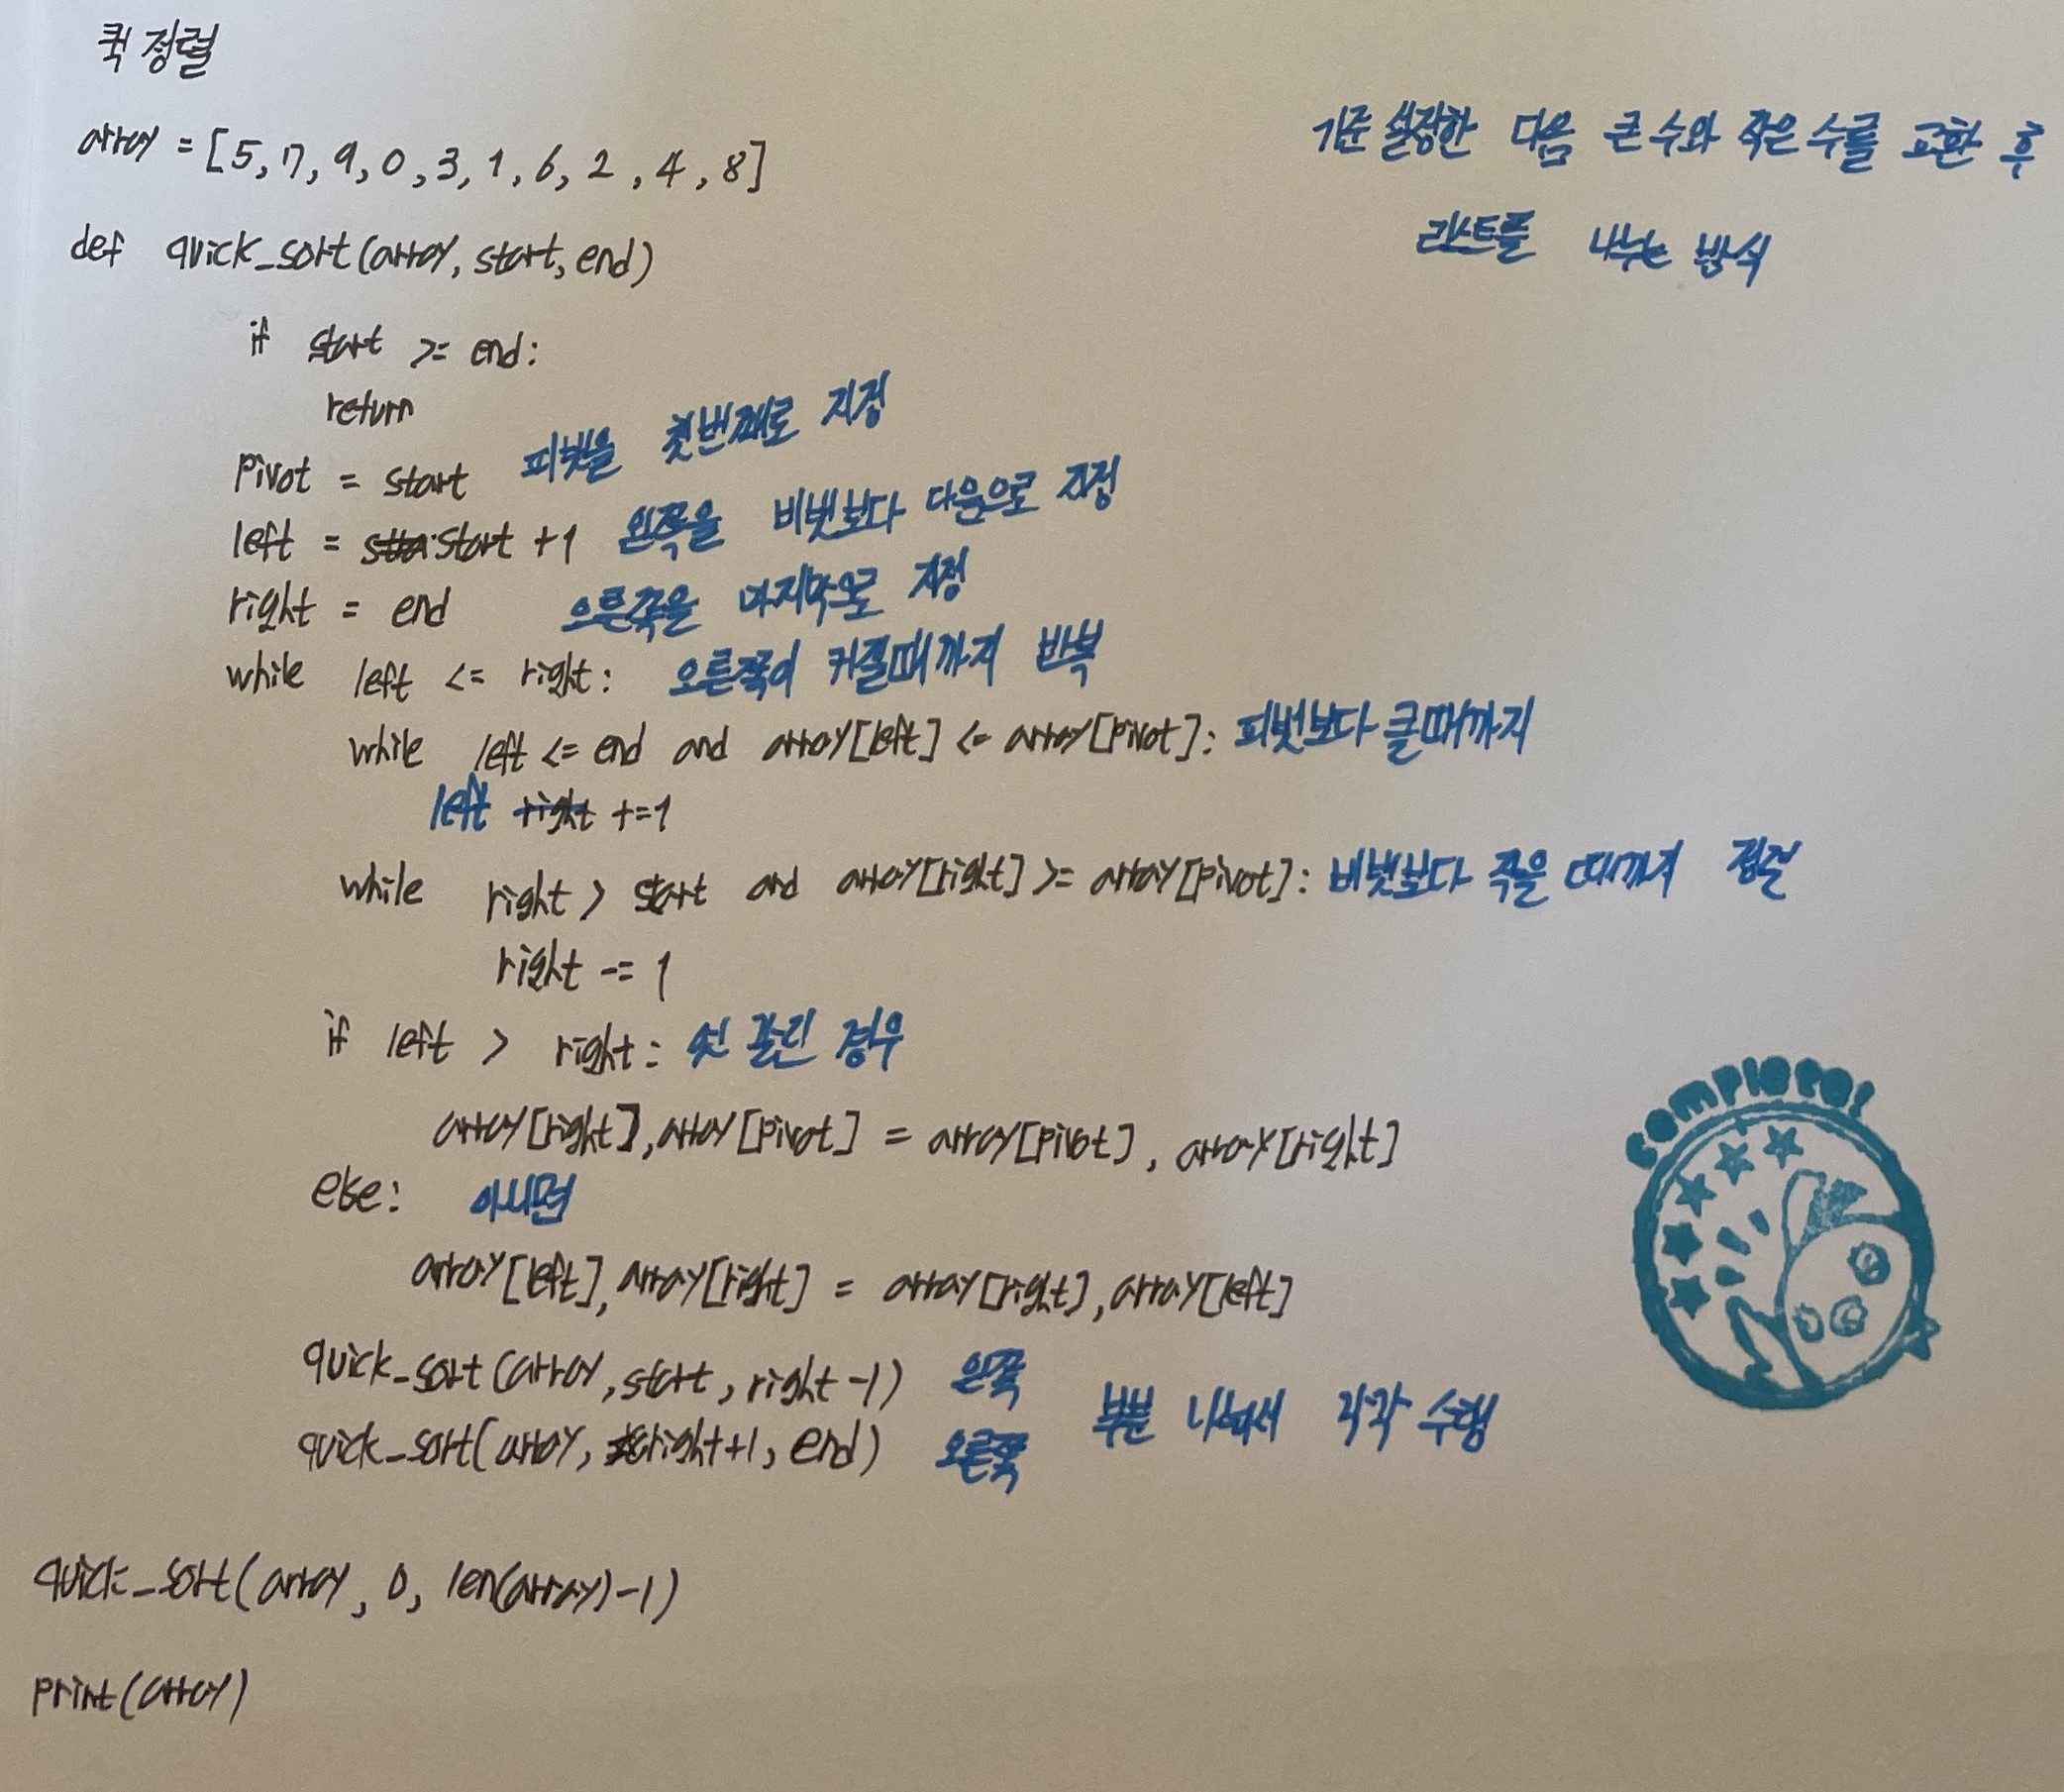 퀵 정렬
array = [5, 7, 9, 0, 3, 1, 6, 2, 4, 8]
기준 설정한 다음 큰 수와 작은 수를 교환 후
리스트를 나누는 방식
def quick_sort(array, start, end)
if start >= end:
return
Pivot = start 피벗을 첫번째로 지정
left = start +1 왼쪽을 비벗보다 다음으로 지정
right = end 으른쪽을 마지막으로 지정
while left <= right: 오른쪽이 커질때까지 반복
while left <= end and array[left] <= array[pivot]: 피벗보다 클때까지
left right +=1
while right > start and array[right] >= array[pivot]: 비벗보다 작을 때까지
right -= 1
if left > right: 엇 갈린 경우
array[right], array[pivot] = array[pivot], array[right]
else: 아니면
array[left], array[right] = array[right], array[left]
quick_sort(array, start, right-1) 왼쪽
부분 나눠서 각각 수행
quick_sort(array, right+1, end) 오른쪽
quick_sort(array, 0, len(array)-1)
print(array)
complete!